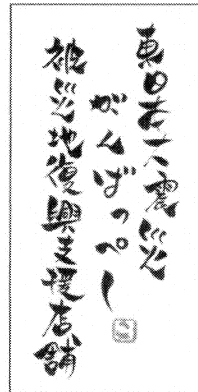 東日本大震災
がんばっぺー
被災地復興支援店舗